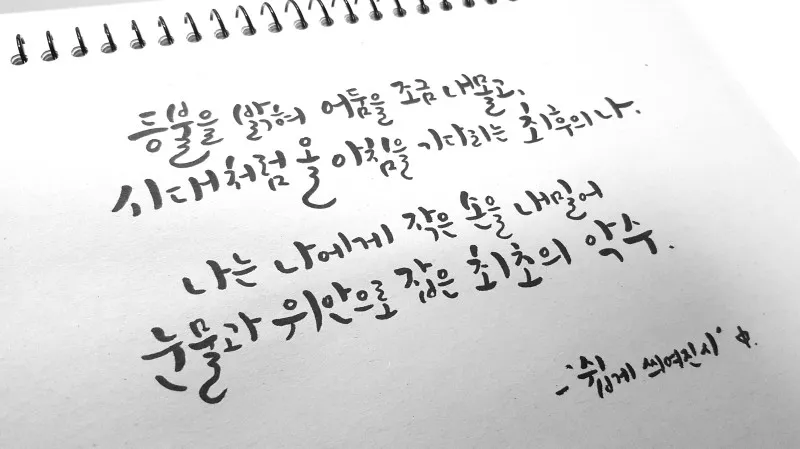 등불을 밝혀 어둠을 조금 내몰고,
시대처럼 올 아침을 기다리는 최후의 나.
나는 나에게 작은 손을 내밀어
눈물과 위안으로 잡은 최초의 악수.
- '쉽게 씌여진 시' 中.